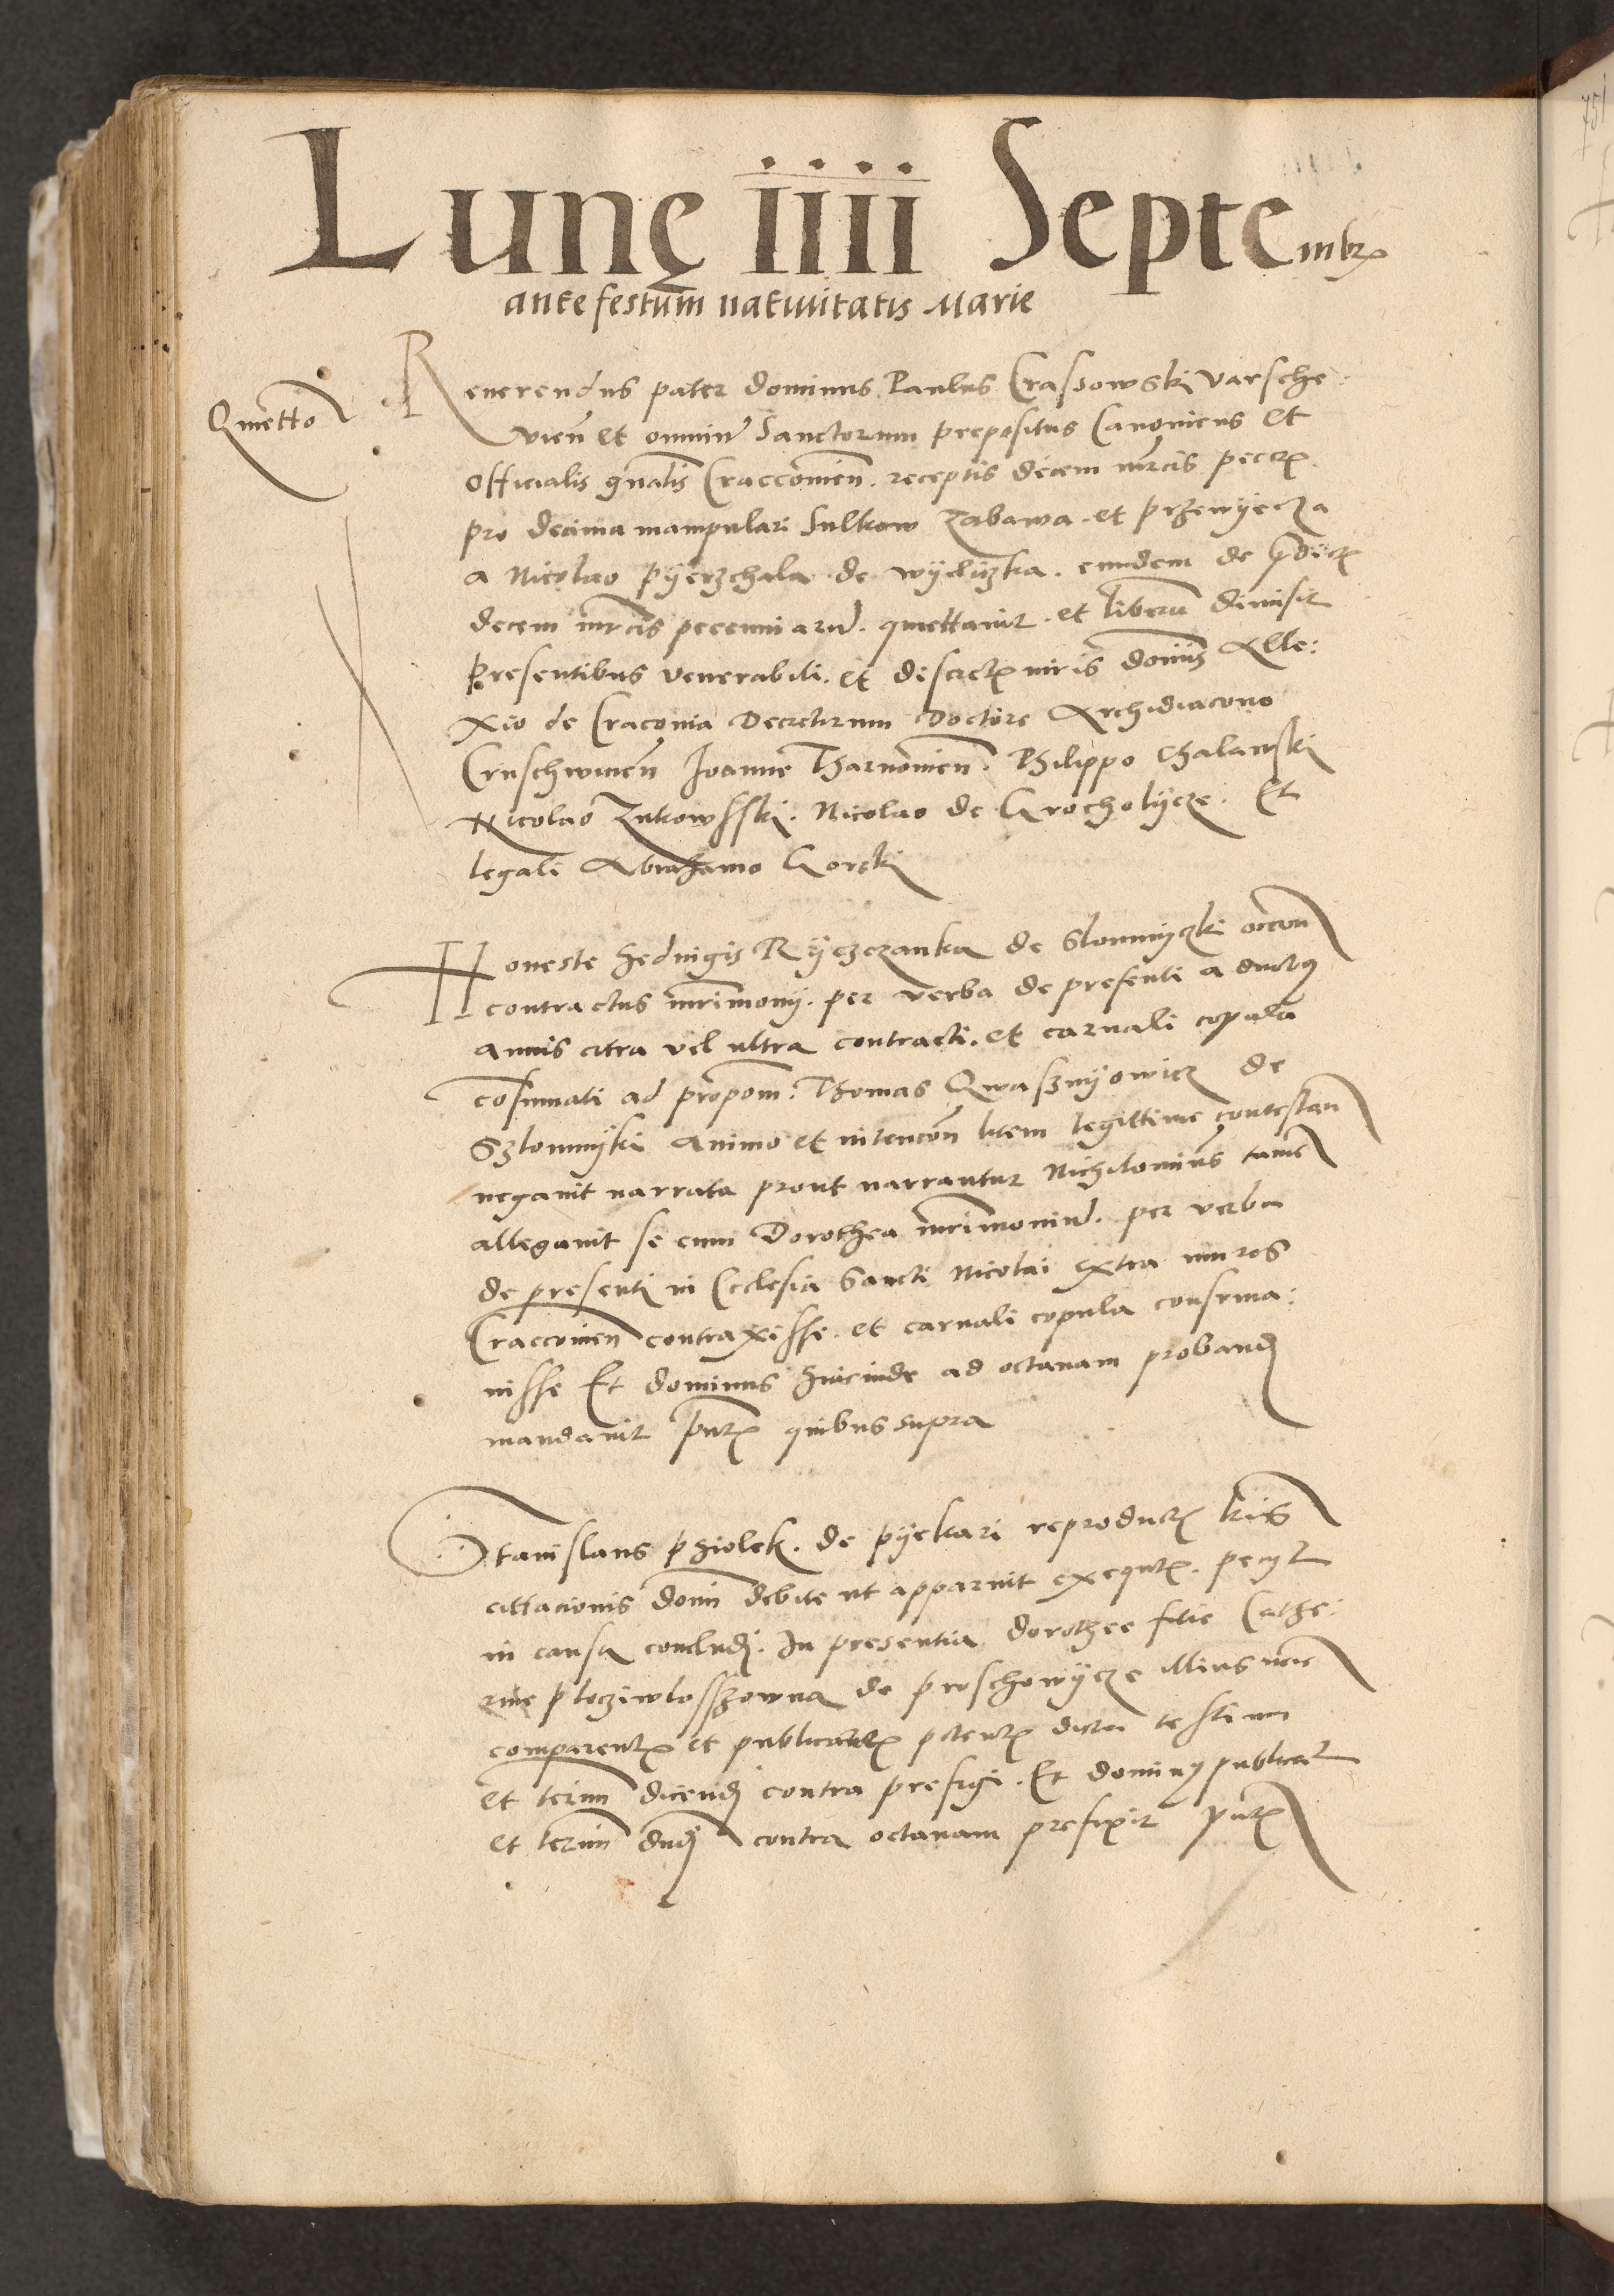 Lunę iiii Septembr
ante festum nativitatis Marie
Quetto
Reverendus pater dominus Paulus Crassowski varsche:
vien et omnium Sanctorum prepositus Canonicus et
Officialis gnalis Craccovien. receptis decem mrcis pecun
pro decima manipulari Sulkow Zabawa et przewyecza
a Nicolao pyerzchala de wyelyzka. eundem de
decem mrcis pecuniarum. quettavit. et liberum dimisit
presentibus venerabili. et discret viris dominis Alle:
xio de Cracovia Decretorum Doctore Archidiacono
Cruschwicien Joanne Tharnovien. Philippo Chalawski
Nicolao Zukowsski. Nicolao de Grocholycze. Et
legali Abrahamo Gorski
Honeste hedvigis Ryczczanka de Slomnyczki accon
contractus mrimonij. per verba de presenti a duobus
annis citra vel ultra contracti. et carnali copula
consumati ad propom. Thomas Qwasznyowicz de
Szlomnyki animo et intencon litem legittime contestan
negavit narrata prout narrantur Nichilominus tamen
allegavit se cum Dorothea mrimonium. per verba
de presenti in Ecclesia Sancti Nicolai extra muros
Craccovien contraxisse. et carnali copula consuma:
visse Et dominus hincinde ad octavam proband
mandavit pntz quibus supra
Stanislaus pziolek. de pyekari reproduct lris
cittacionis domi debite ut apparuit exequt. pecyt
in causa concludi. In presentia dorothee filie Cathe:
rine ploczywlosszowna de proschowycze illius
comparent et publicat petent dicta testium
et termi dicendi contra prefigi. Et dominus publicat
et termi dndi contra octavam prefixit pntz